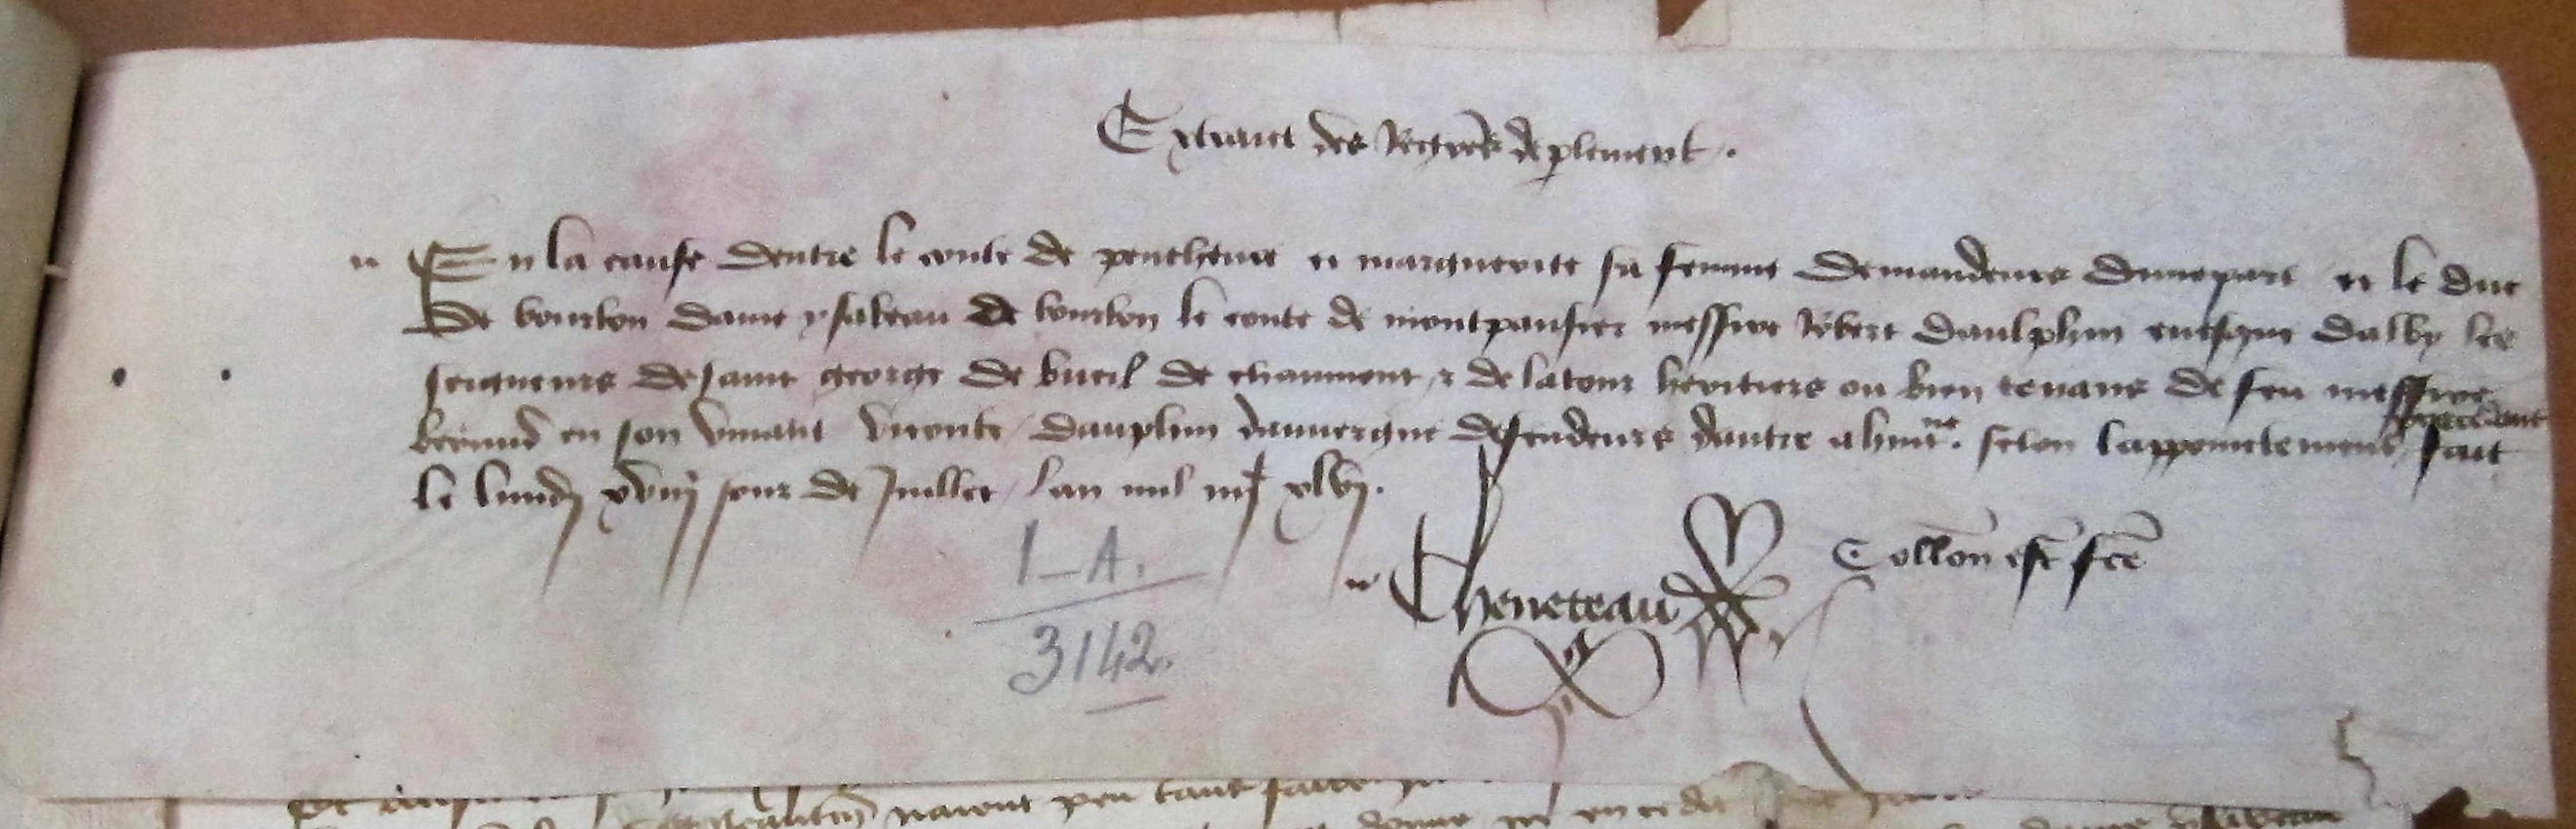 Extraict des Regrēs de plement.
En la cause dentre le conte de penthevre et marguerite sa femme demandeurs dunepart et le duc
de bourbon dame ysabeau de bourbon le conte de montpansier messire Robert daulphin evesque dalby les
seigneurs de saint george de bueil de chaumont & de latour heritiers ou bien tenans de feu messire
beraud en son vivant viconte dauphin dauvergne defendeurs dautre a huit.ne selon lappoinctement fait
le lundi xviij jour de Juillet lan mil iiijc xlvij.
Cheneteau
Collon est fce
I_A.
3142.